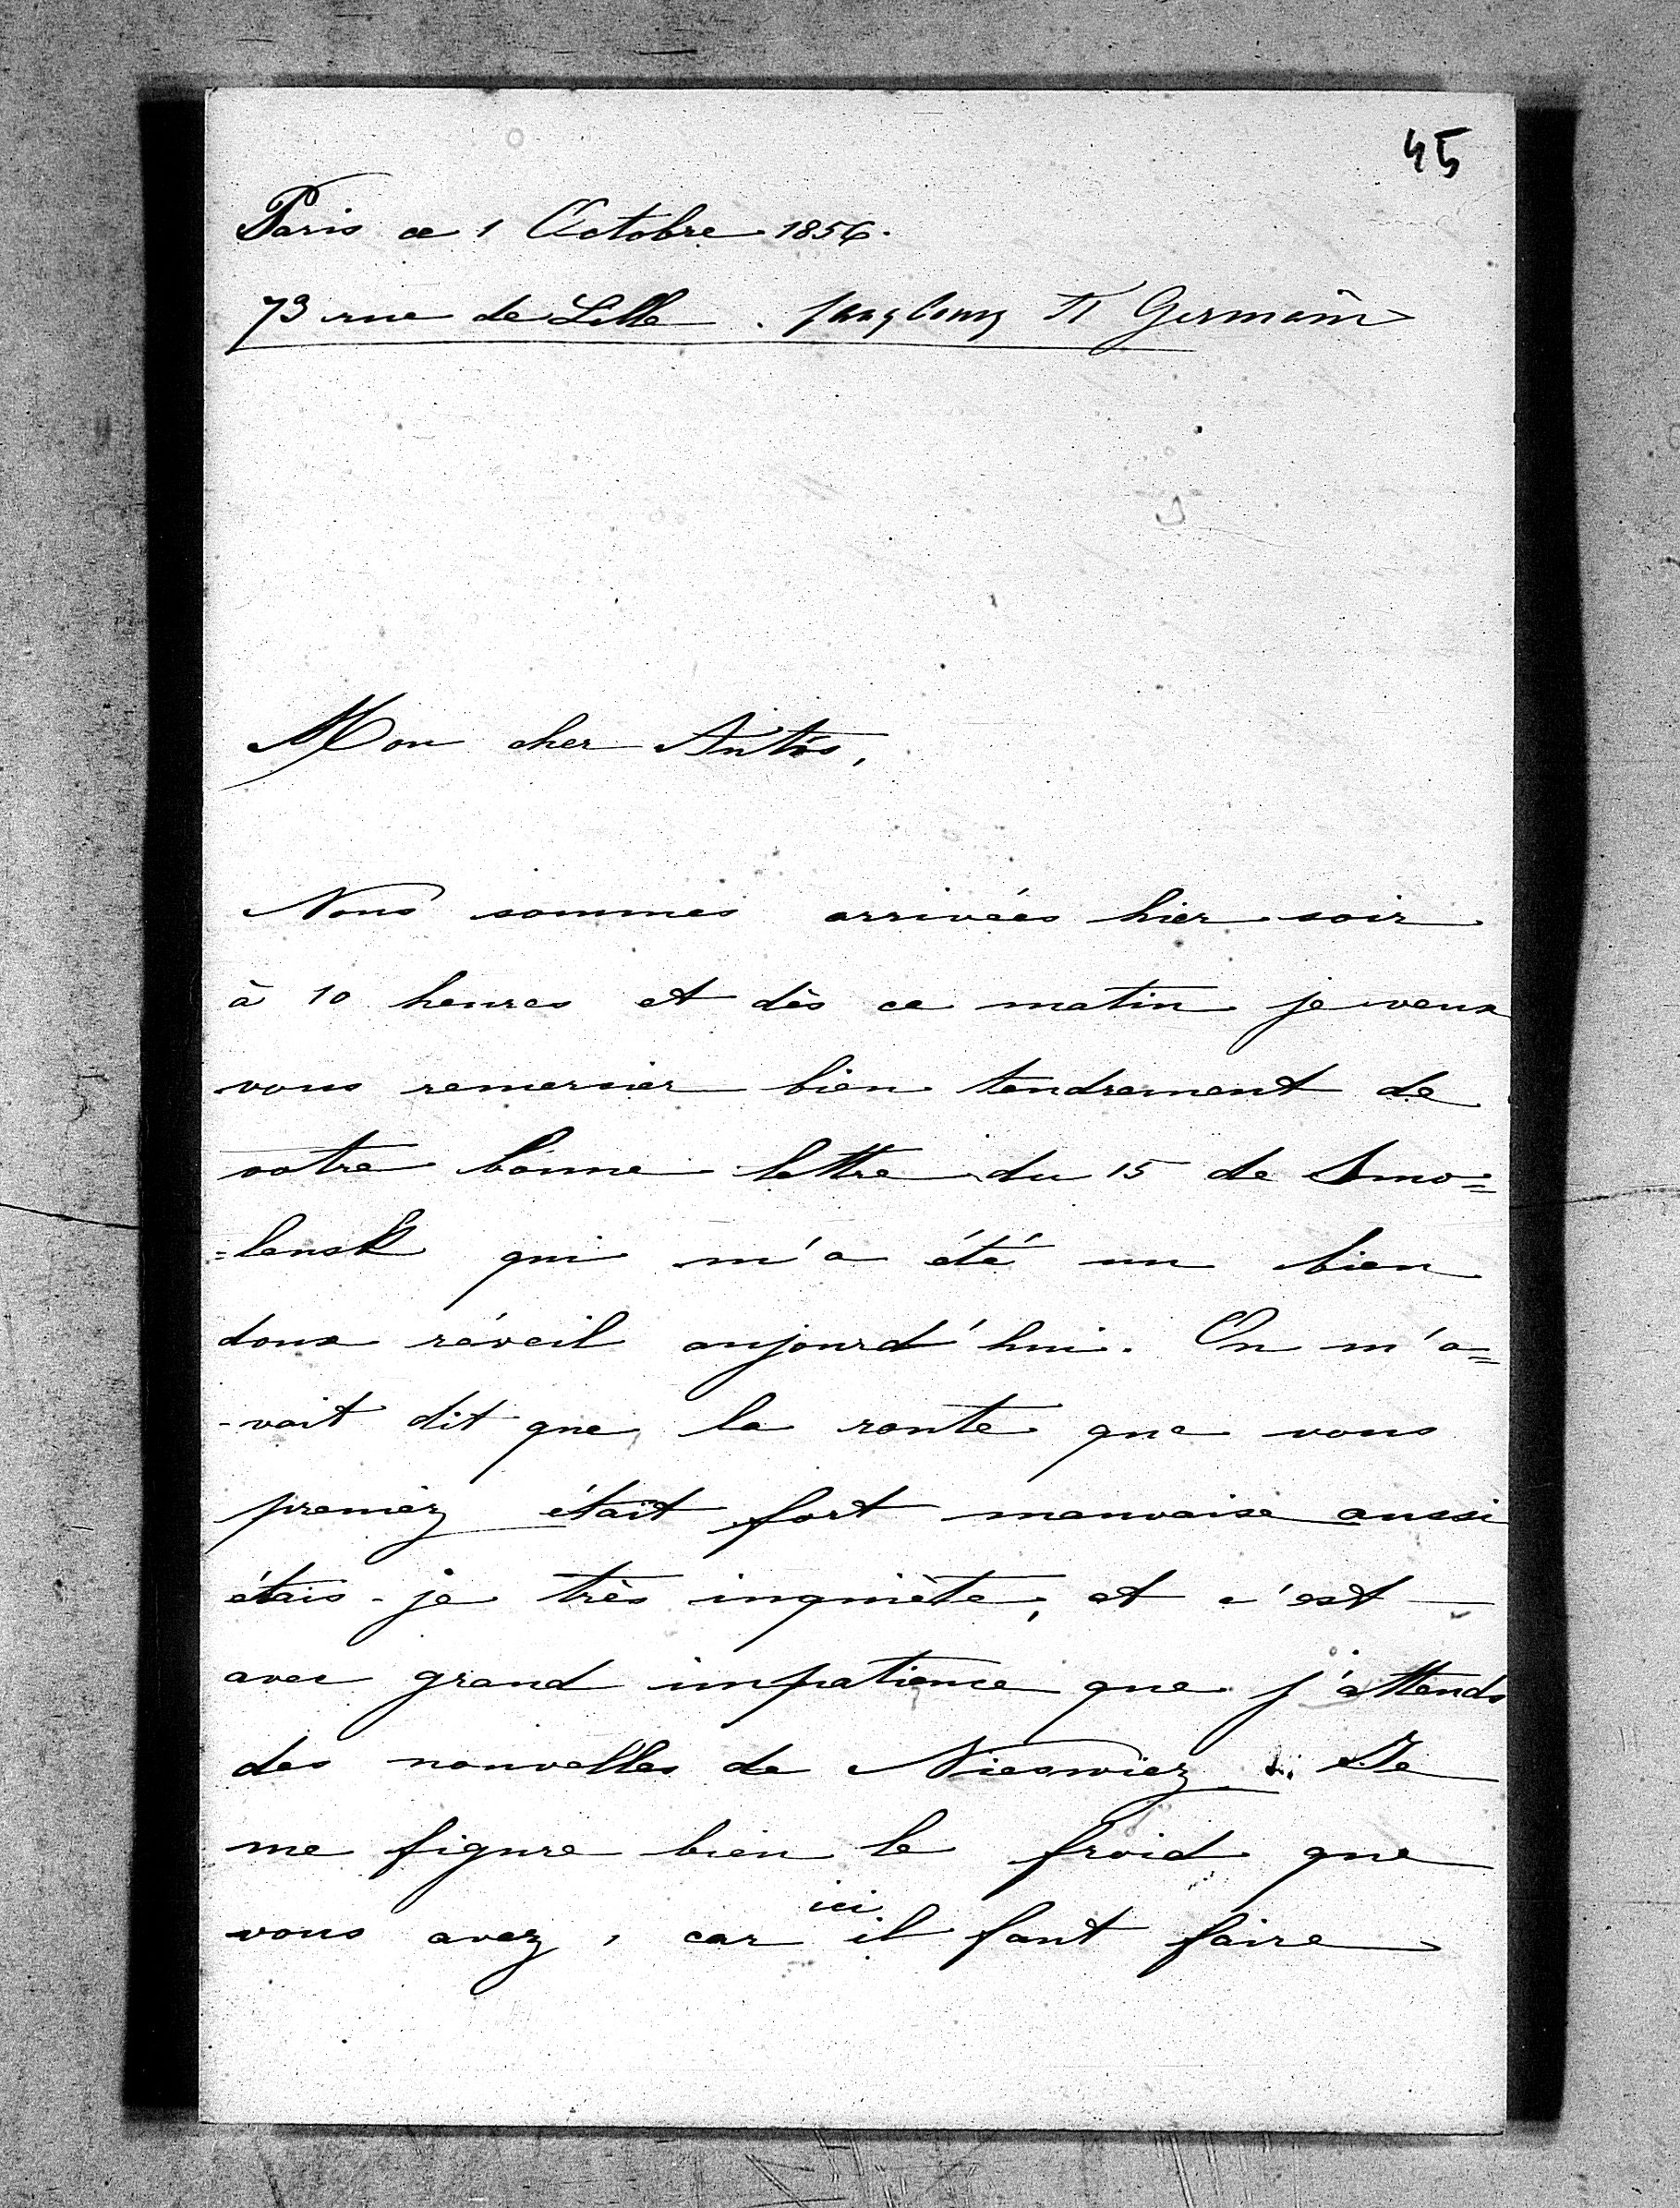 45
Paris ce 1 Octobre 1856.
73 rue de Lille. faugbourg St Germain
Mon cher Antós,
Nous sommes arrivées hier soir
à 10 heures et dès ce matin je veux
vous remercier bien tendrement de
votre bonne lettre du 15 de Smo=
=lensk qui m'a été un bien
doux réveil aujourd'hui. On m'a=
-vait dit que la route que vous
preniez était fort mauvaise aussi
étais-je très inquiète, et c'est
avec grand impatience que j'attends
des nouvelles de Nieswiez. Je
me figure bien le froid que
vous avez, car ici il faut faire